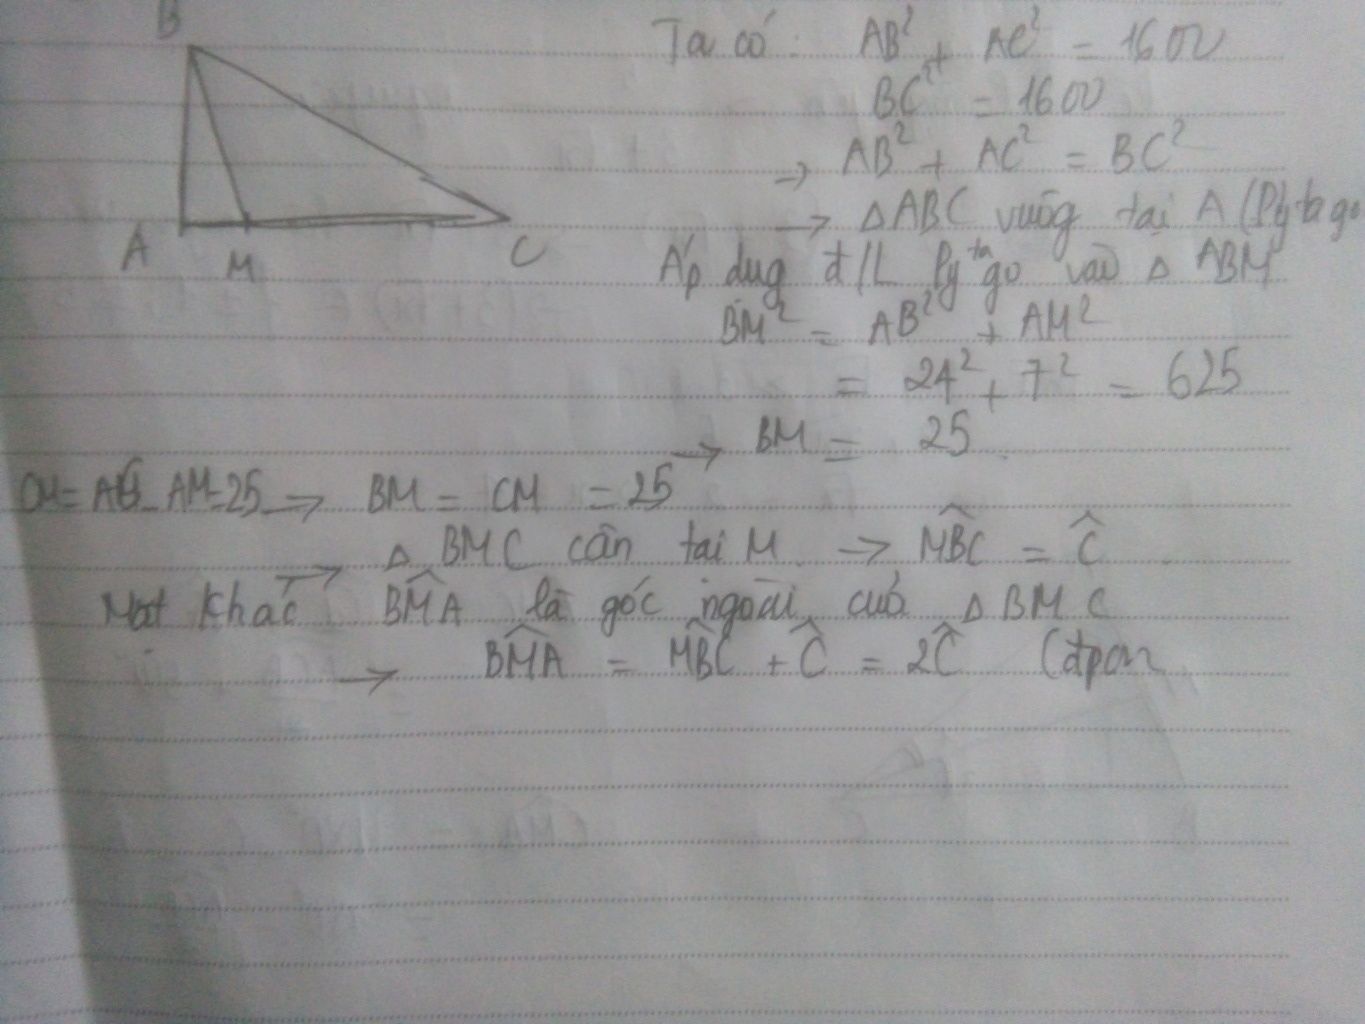 B
A
M
C
Ta có: AB² + AC² = 1600
BC² = 1600
→ AB² + AC² = BC²
→ △ABC vuông tại A (Pytago
Áp dụg đ/L Pytago vào △ ABM
BM² = AB² + AM²
= 24² + 7² = 625
→ BM = 25
CM = AC - AM = 25 → BM = CM = 25
→ △ BMC cân tại M → M̂BC = Ĉ
Mặt khác BM̂A là góc ngoài của △ BMC
→ BM̂A = M̂BC + Ĉ = 2Ĉ (đpcm